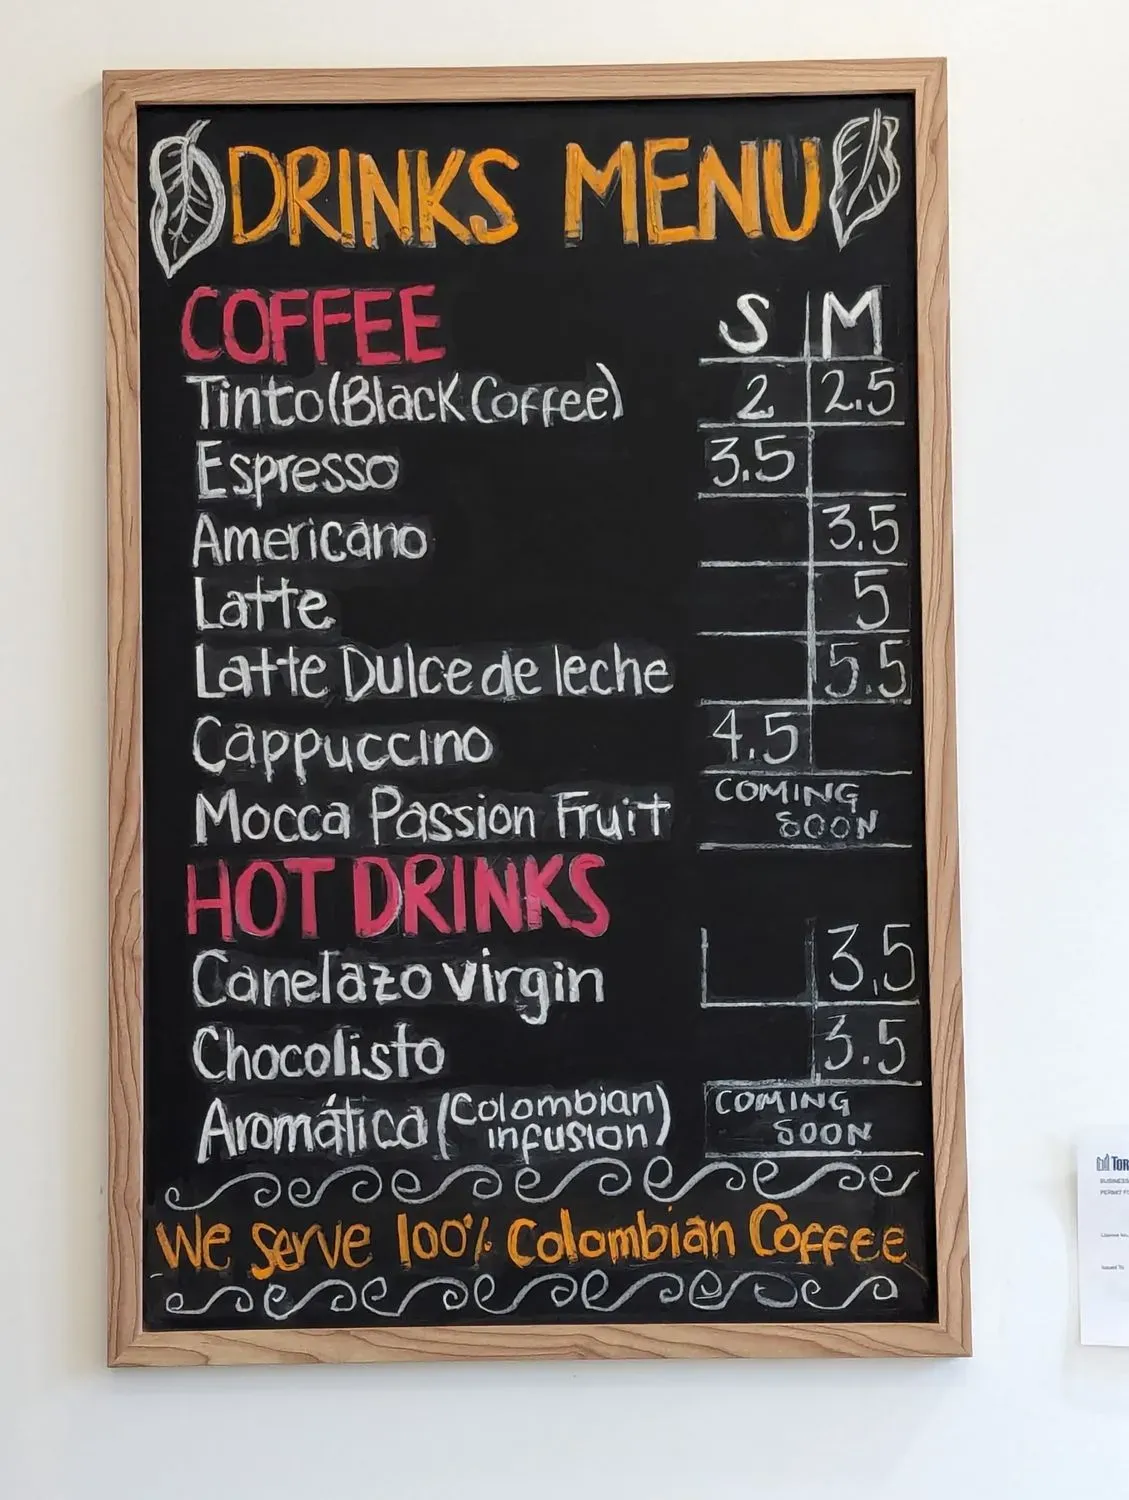 DRINKS MENU
COFFEE S M
Tinto (Black Coffee) 2 2.5
Espresso 3.5
Americano 3.5
Latte 5
Latte Dulce de leche 5.5
Cappuccino 4.5
Mocca Passion Fruit COMING SOON
HOT DRINKS
Canelazo virgin 3.5
Chocolisto 3.5
Aromática (Colombian infusion) COMING SOON
We serve 100% Colombian Coffee
TOR
BUSINESS
PERMIT
Issued To